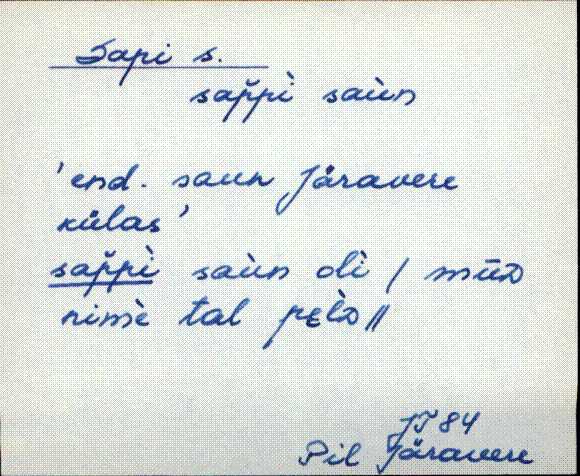 Sapi s.
sap̆pì saùn
'end. saun Järavere
külas'
sap̆pì saùn olì / mūᴅ
nimè tal pɛlᴅ̀ //
JT 84
Pil Järavere